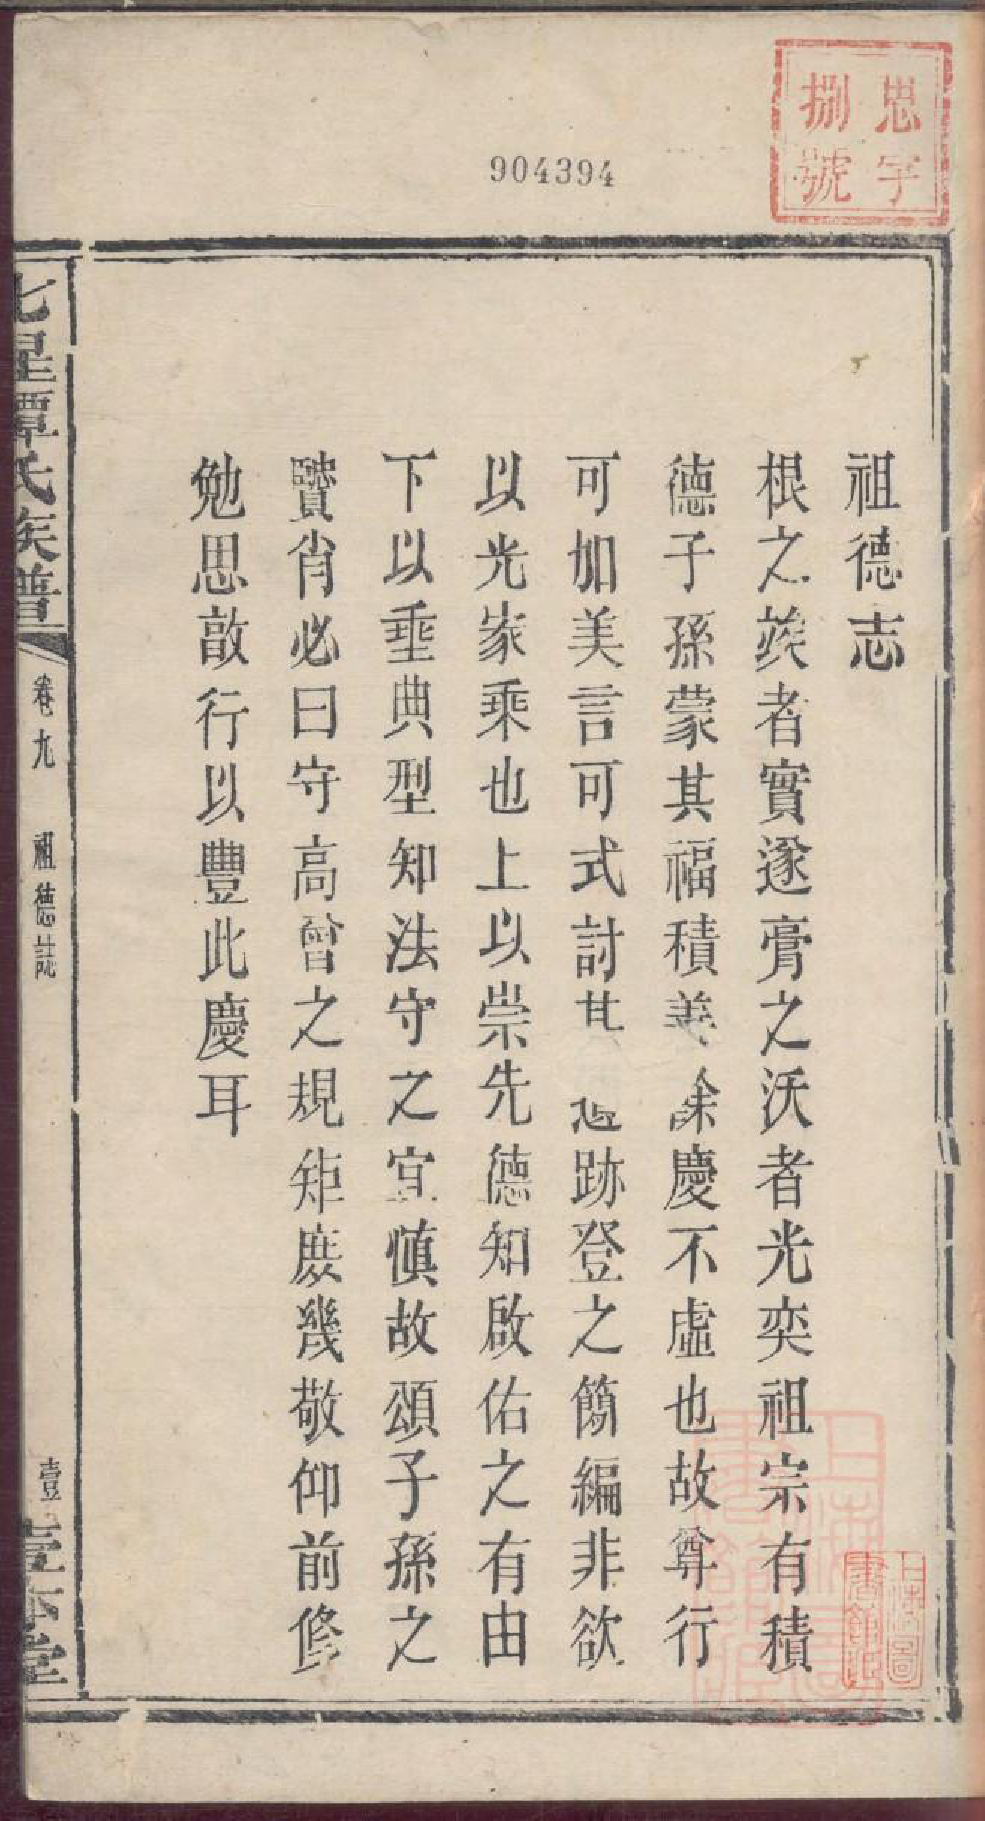 思字
捌號
904394
祖德志
根之㢮者實遂膏之沃者光奕祖宗有積
德子孫蒙其福積善餘慶不虛也故尊行
可加美言可式討其遐跡登之簡編非欲
以光家乘也上以崇先德知啟佑之有由
下以垂典型知法守之宜慎故頌子孫之
賢肖必曰守高曾之規矩庶幾敬仰前修
勉思敨行以豐此慶耳
七星譚氏族譜
卷九
祖德誌
壹
壹本堂
上海圖
書館藏